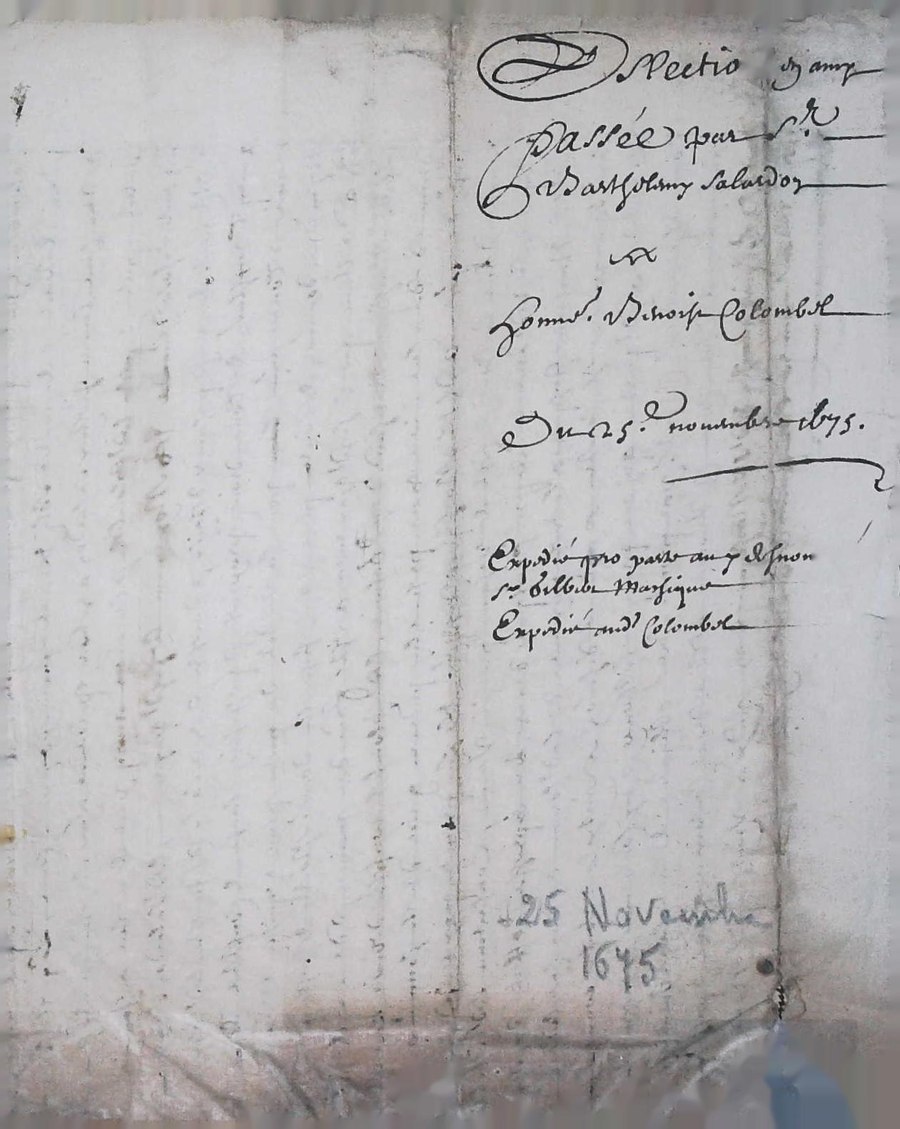 Eslectio en amy
Passée par Sr
Barthelemy Salardon
A
Honne. Benoist Colombel
Du 25e. novembre 1675.
Expedié pro parte au
Sr Gilbert
Expedié aud Colombel
25 Novembre
1675